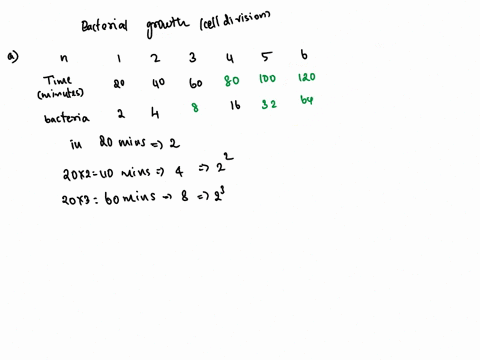 Bacterial growth (cell division)
a) n 1 2 3 4 5 6
Time (minutes) 20 40 60 80 100 120
bacteria 2 4 8 16 32 64
in 20 mins => 2
20x2=40 mins => 4 => 2^2
20x3= 60 mins => 8 => 2^3